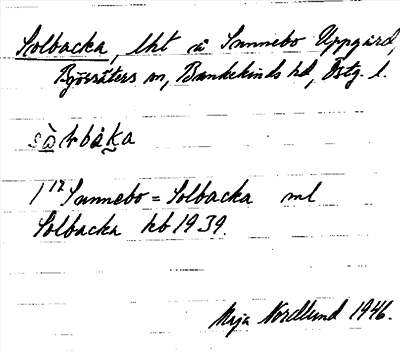 Solbacka, lht å Sunnebo Uppgård,
Björsäters sn, Bankekinds hd, Östg. l.
1 12 Sunnebo = Solbacka ml
Solbacka hb 1939.
Maja Nordlund 1946.